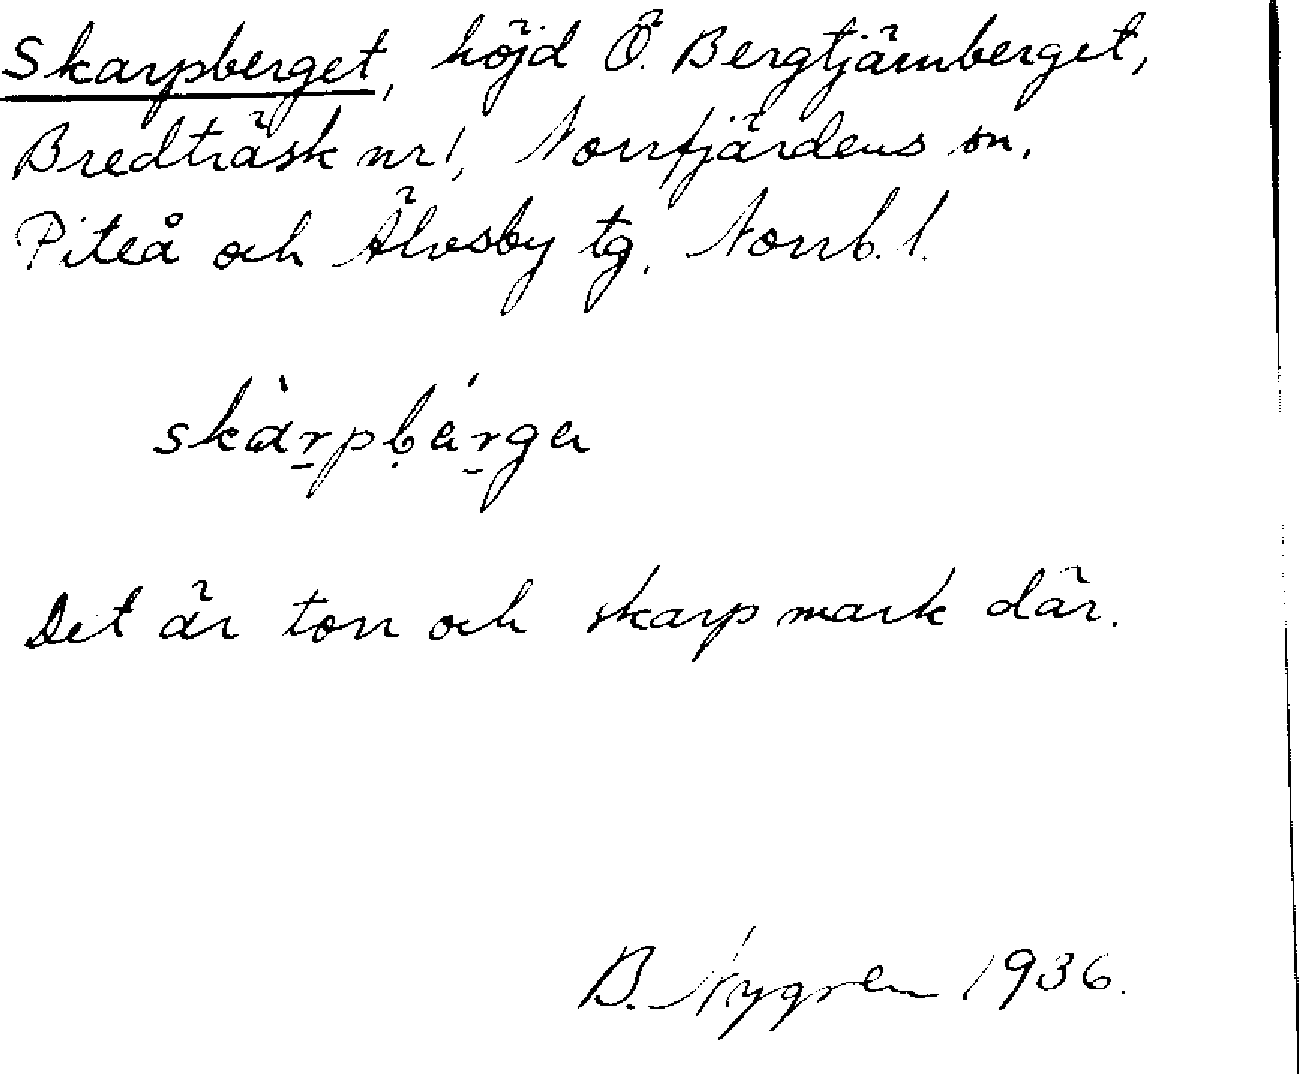 Skarpberget, höjd Ö. Bergtjärnberget,
Bredträsk nr 1, Norrfjärdens sn.
Piteå och Älvsby tg. Norrb. l.
skàrpbárga
Det är torr och skarp mark där.
B. Nygren 1936.